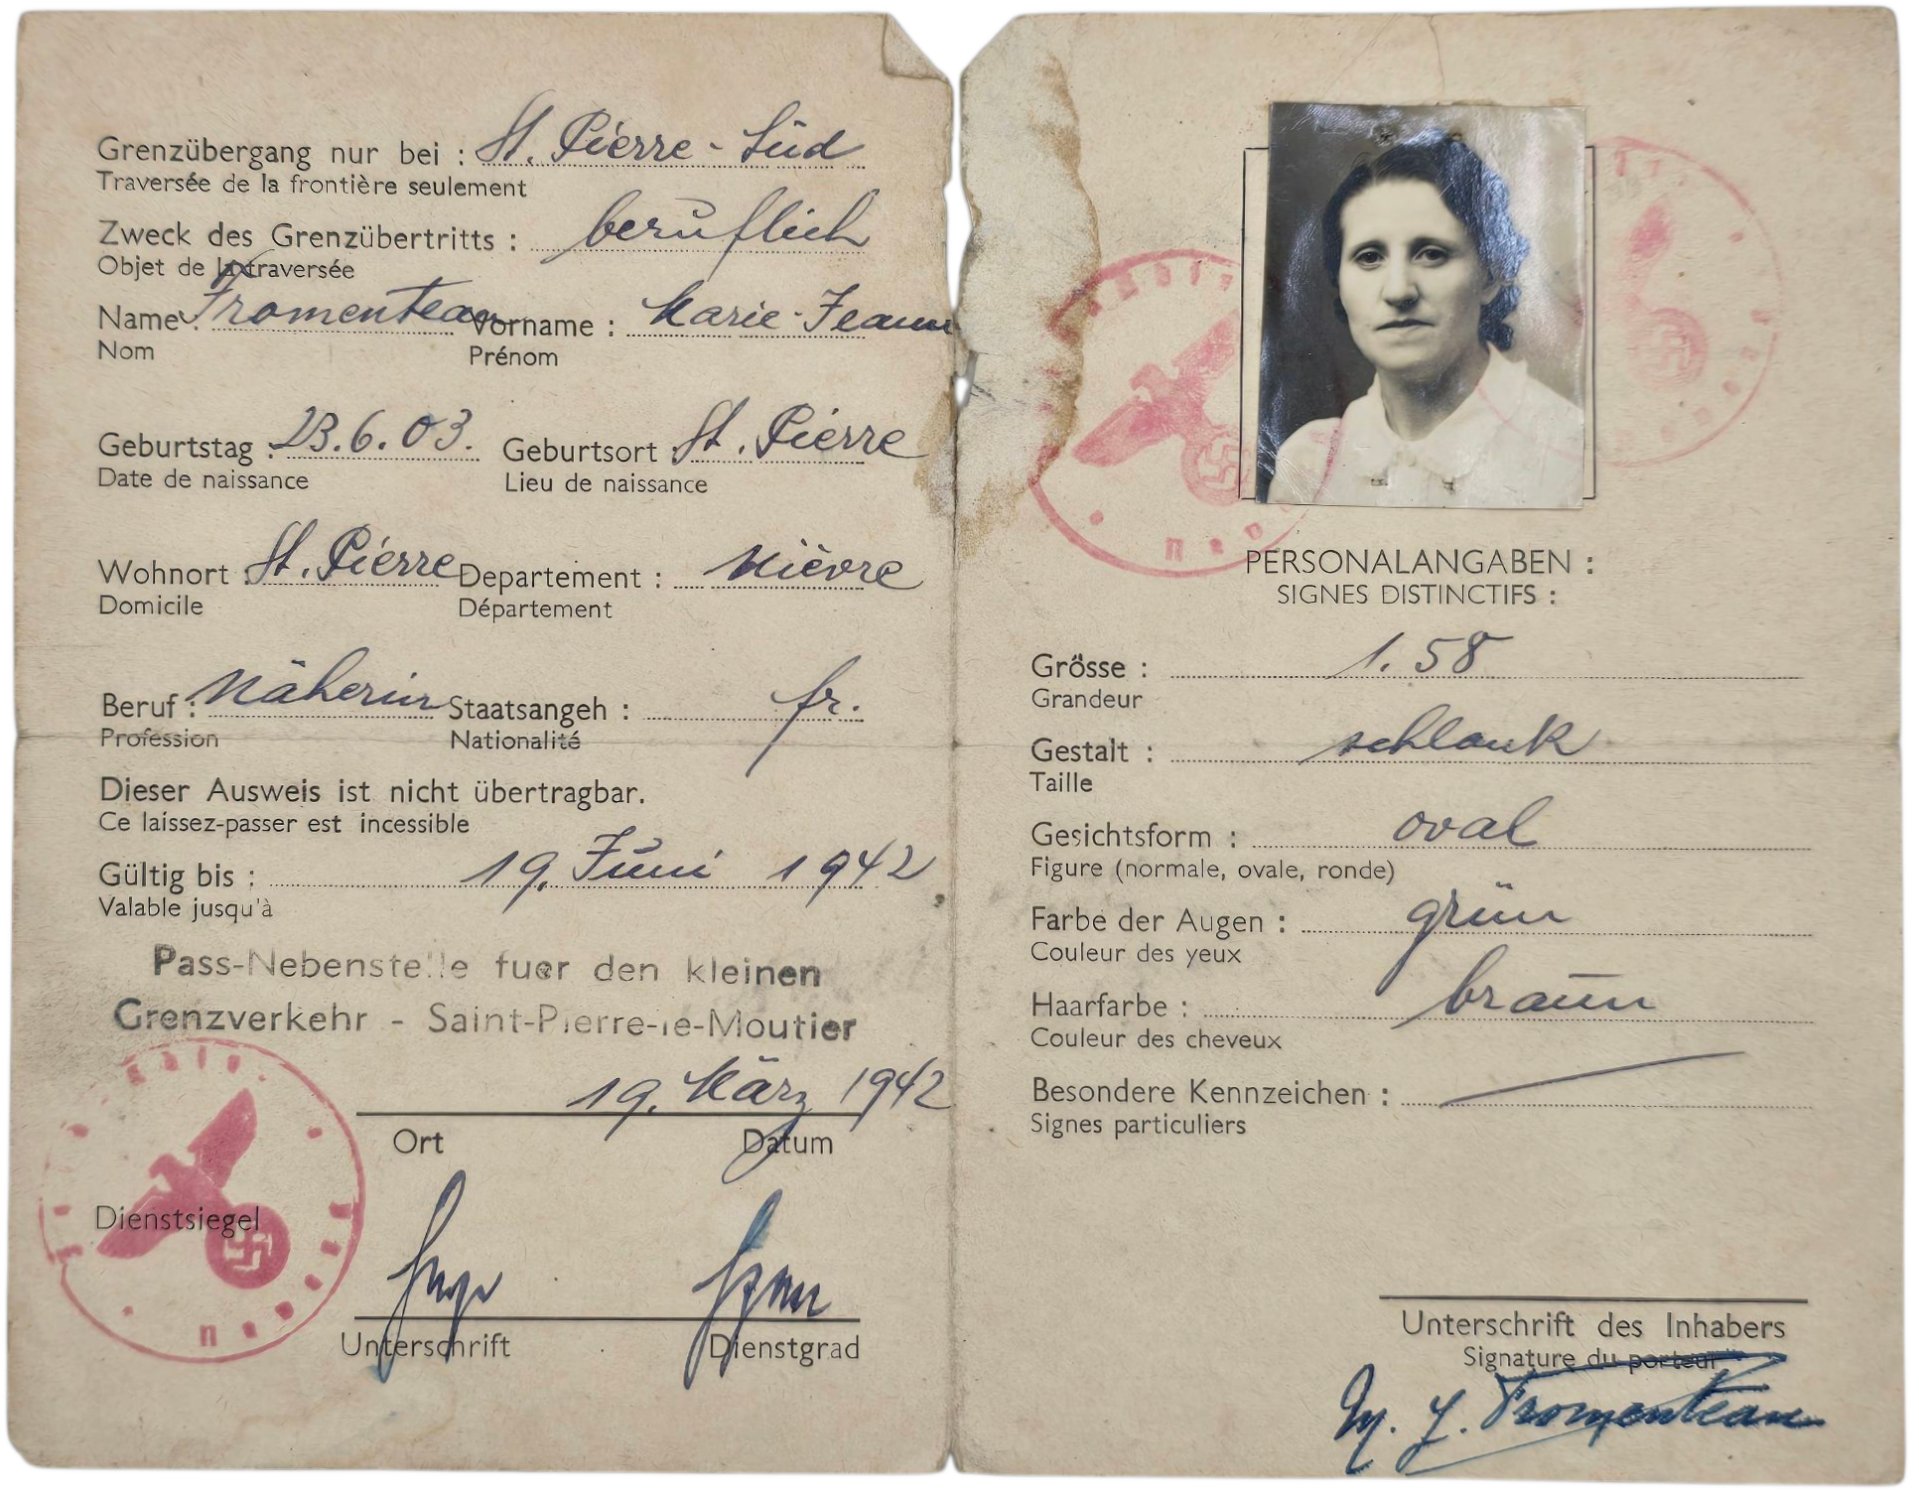 Grenzübergang nur bei : St. Pierre-Süd
Traversée de la frontière seulement
Zweck des Grenzübertritts : beruflich
Objet de la traversée
Name : Fromenteau Vorname : Marie-Jeann
Nom Prénom
Geburtstag : 23.6.03. Geburtsort St. Pierre
Date de naissance Lieu de naissance
Wohnort : St. Pierre Departement : Nièvre
Domicile Département
Beruf : Näherin Staatsangeh : fr.
Profession Nationalité
Dieser Ausweis ist nicht übertragbar.
Ce laissez-passer est incessible
Gültig bis : 19. Juni 1942
Valable jusqu'à
Pass-Nebenstelle fuer den kleinen
Grenzverkehr - Saint-Pierre-le-Moutier
19. März 1942
Ort Datum
Dienstsiegel
Unterschrift Dienstgrad
PERSONALANGABEN :
SIGNES DISTINCTIFS :
Grösse : 1.58
Grandeur
Gestalt : schlank
Taille
Gesichtsform : oval
Figure (normale, ovale, ronde)
Farbe der Augen : grün
Couleur des yeux
Haarfarbe : braun
Couleur des cheveux
Besondere Kennzeichen :
Signes particuliers
Unterschrift des Inhabers
Signature du porteur
M. J. Fromenteau